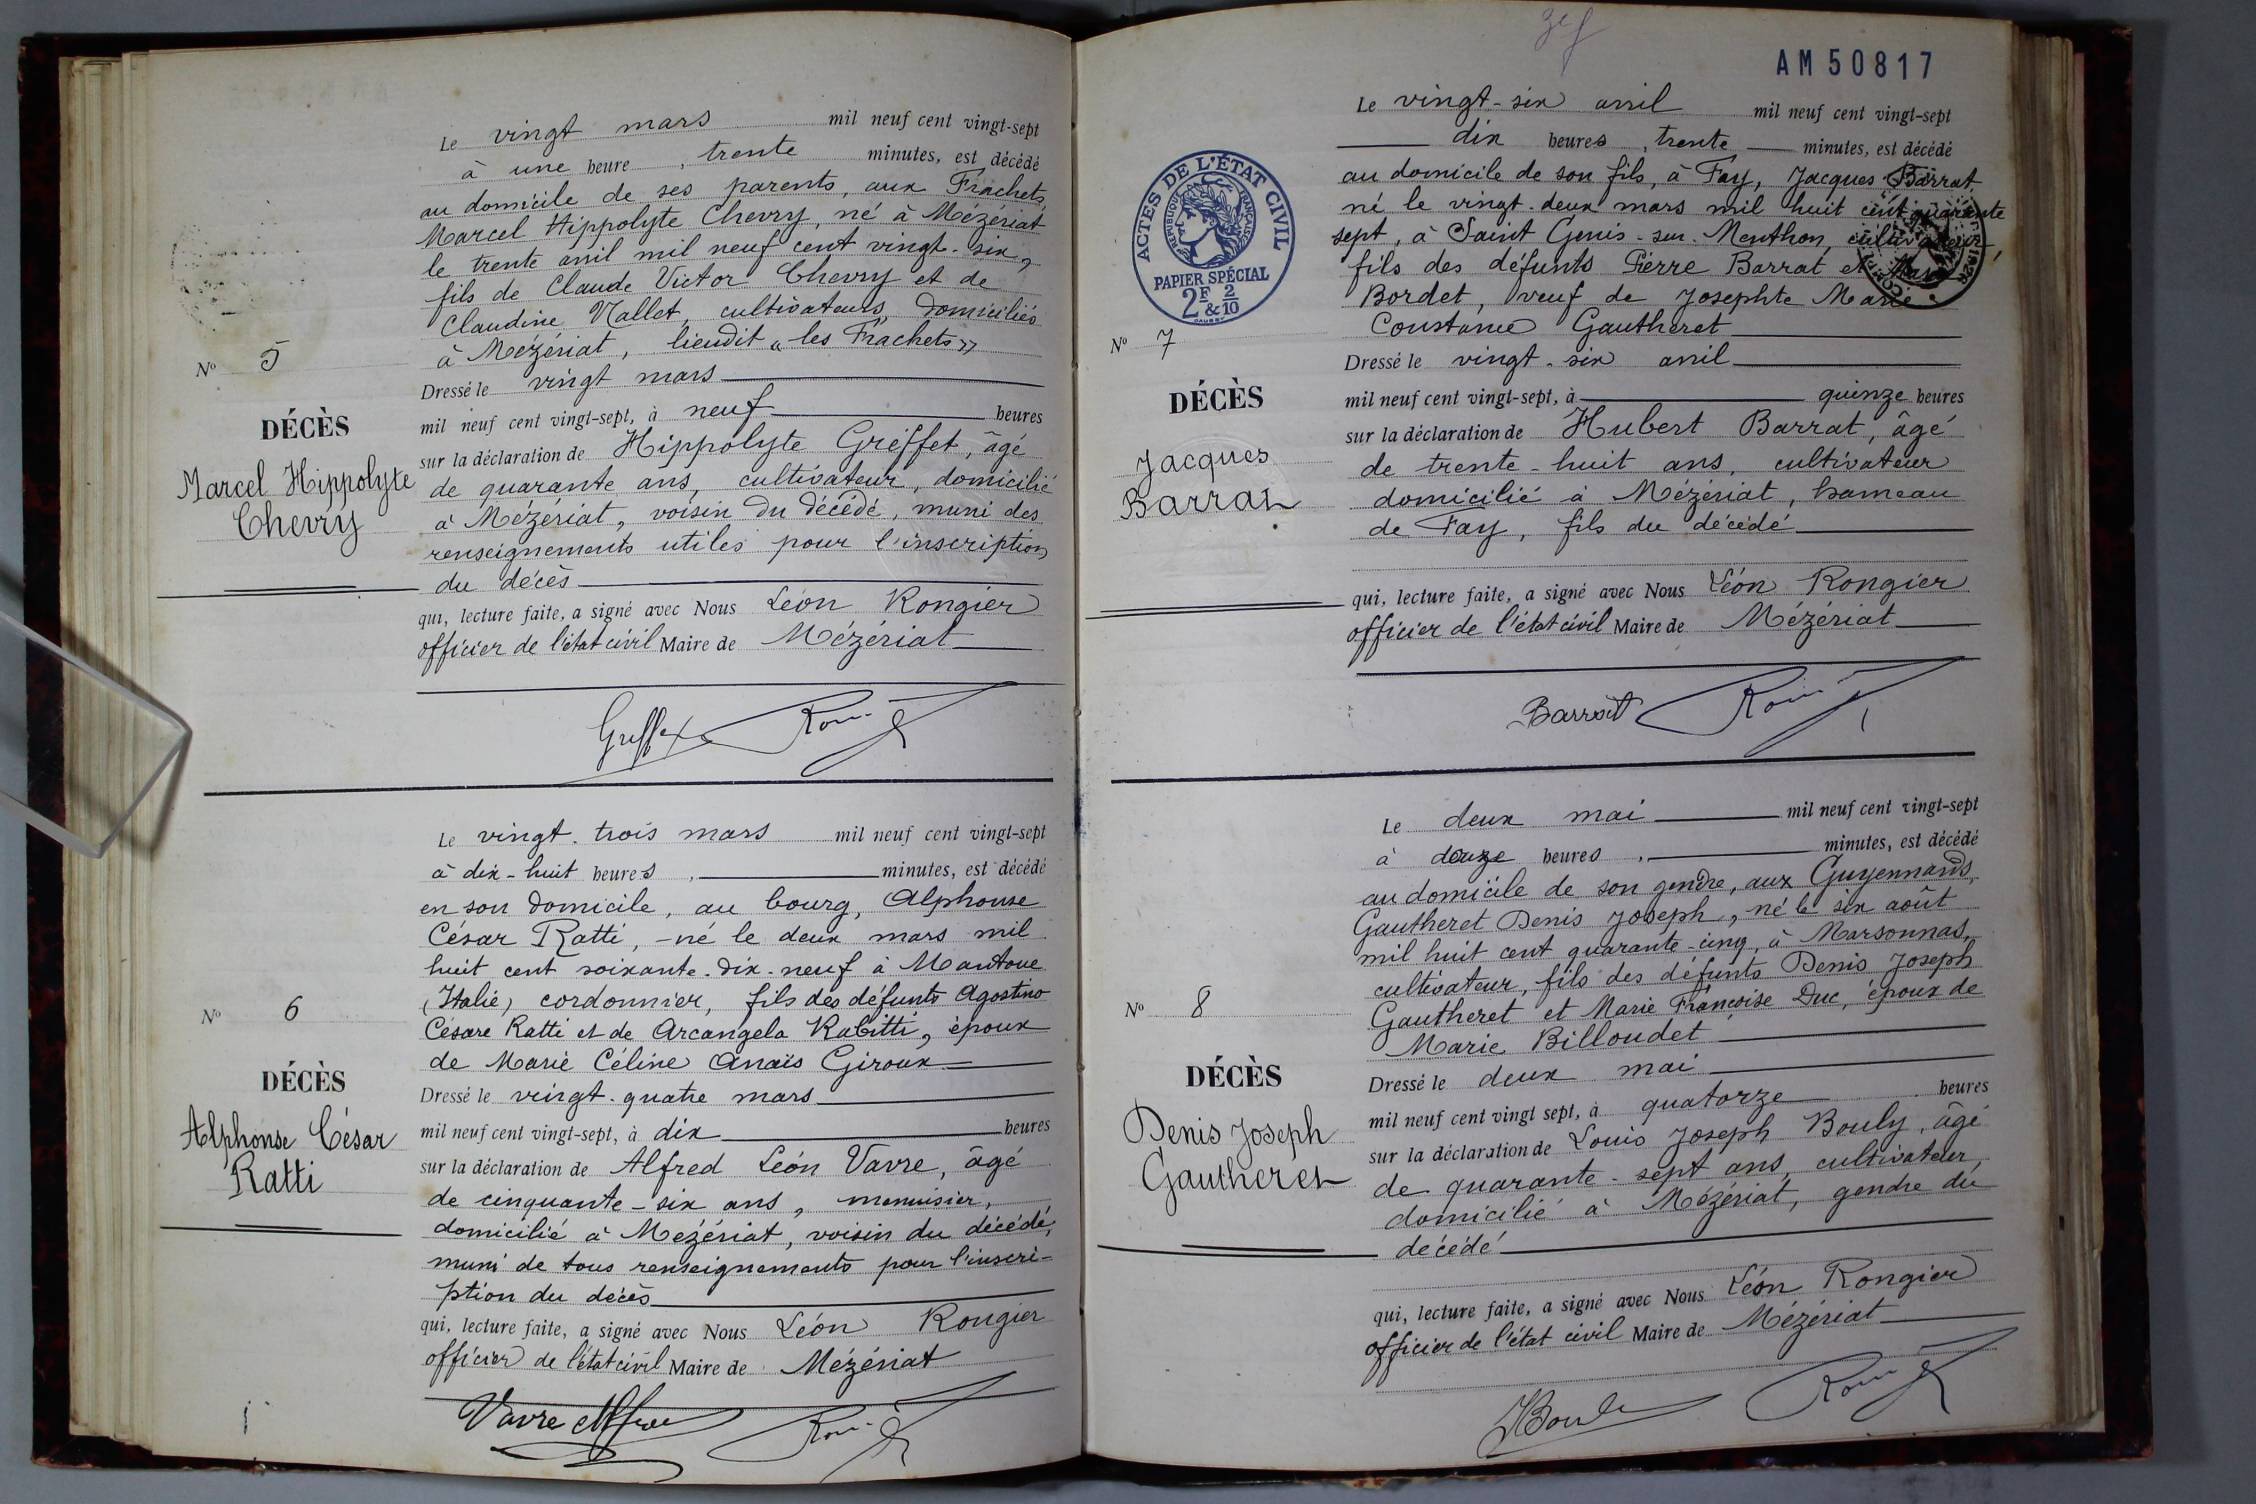 Le vingt mars mil neuf cent vingt-sept
à une heure, trente minutes, est décédé
au domicile de ses parents, aux Frachets,
Marcel Hippolyte Chevry, né à Mézériat
le trente avril mil neuf cent vingt-six,
fils de Claude Victor Chevry et de
Claudine Mallet, cultivateurs, domiciliés
à Mézériat, lieudit « les Frachets »
N° 5
Dressé le vingt mars
DÉCÈS
mil neuf cent vingt-sept, à neuf heures
Marcel Hippolyte
Chevry
sur la déclaration de Hippolyte Gréffet, âgé
de quarante ans, cultivateur, domicilié
à Mézériat, voisin du décédé, muni des
renseignements utiles pour l'inscription
du décès
qui, lecture faite, a signé avec Nous Léon Rongier
officier de l'état civil Maire de Mézériat
Greffet
Le vingt-trois mars mil neuf cent vingt-sept
à dix-huit heures, minutes, est décédé
en son domicile, au bourg, Alphonse
César Ratti, né le deux mars mil
huit cent soixante-dix-neuf à Mantoue
(Italie) cordonnier, fils des défunts Agostino
Césare Ratti et de Arcangela Rabitti, époux
de Marie Céline Anaïs Giroux
N° 6
DÉCÈS
Alphonse César
Ratti
Dressé le vingt-quatre mars
mil neuf cent vingt-sept, à dix heures
sur la déclaration de Alfred Léon Vavre, âgé
de cinquante-six ans, menuisier,
domicilié à Mézériat, voisin du décédé,
muni de tous renseignements pour l'inscri-
ption du décès
qui, lecture faite, a signé avec Nous Léon Rongier
officier de l'état civil Maire de Mézériat
Vavre Alfred
AM 50817
Le vingt-six avril mil neuf cent vingt-sept
dix heures, trente minutes, est décédé
au domicile de son fils, à Fay, Jacques Barrat,
né le vingt-deux mars mil huit cent quarante
sept, à Saint Genis-sur-Menthon, cultivateur,
fils des défunts Pierre Barrat et Marie
Bordet, veuf de Josephte Marie
Constance Gautheret
ACTES DE L'ÉTAT CIVIL
RÉPUBLIQUE FRANÇAISE
PAPIER SPÉCIAL
2F & 2/10
N° 7
DÉCÈS
Jacques
Barrat
Dressé le vingt-six avril
mil neuf cent vingt-sept, à quinze heures
sur la déclaration de Hubert Barrat, âgé
de trente-huit ans, cultivateur
domicilié à Mézériat, hameau
de Fay, fils du décédé
qui, lecture faite, a signé avec Nous Léon Rongier
officier de l'état civil Maire de Mézériat
Barrat
Le deux mai mil neuf cent vingt-sept
à douze heures, minutes, est décédé
au domicile de son gendre, aux Guyennards,
Gautheret Denis Joseph, né le six août
mil huit cent quarante-cinq, à Marsonnas,
cultivateur, fils des défunts Denis Joseph
Gautheret et Marie Françoise Duc, époux de
Marie Billoudet
N° 8
DÉCÈS
Denis Joseph
Gautheret
Dressé le deux mai
mil neuf cent vingt sept, à quatorze heures
sur la déclaration de Louis Joseph Bouly, âgé
de quarante-sept ans, cultivateur,
domicilié à Mézériat, gendre du
décédé
qui, lecture faite, a signé avec Nous Léon Rongier
officier de l'état civil Maire de Mézériat